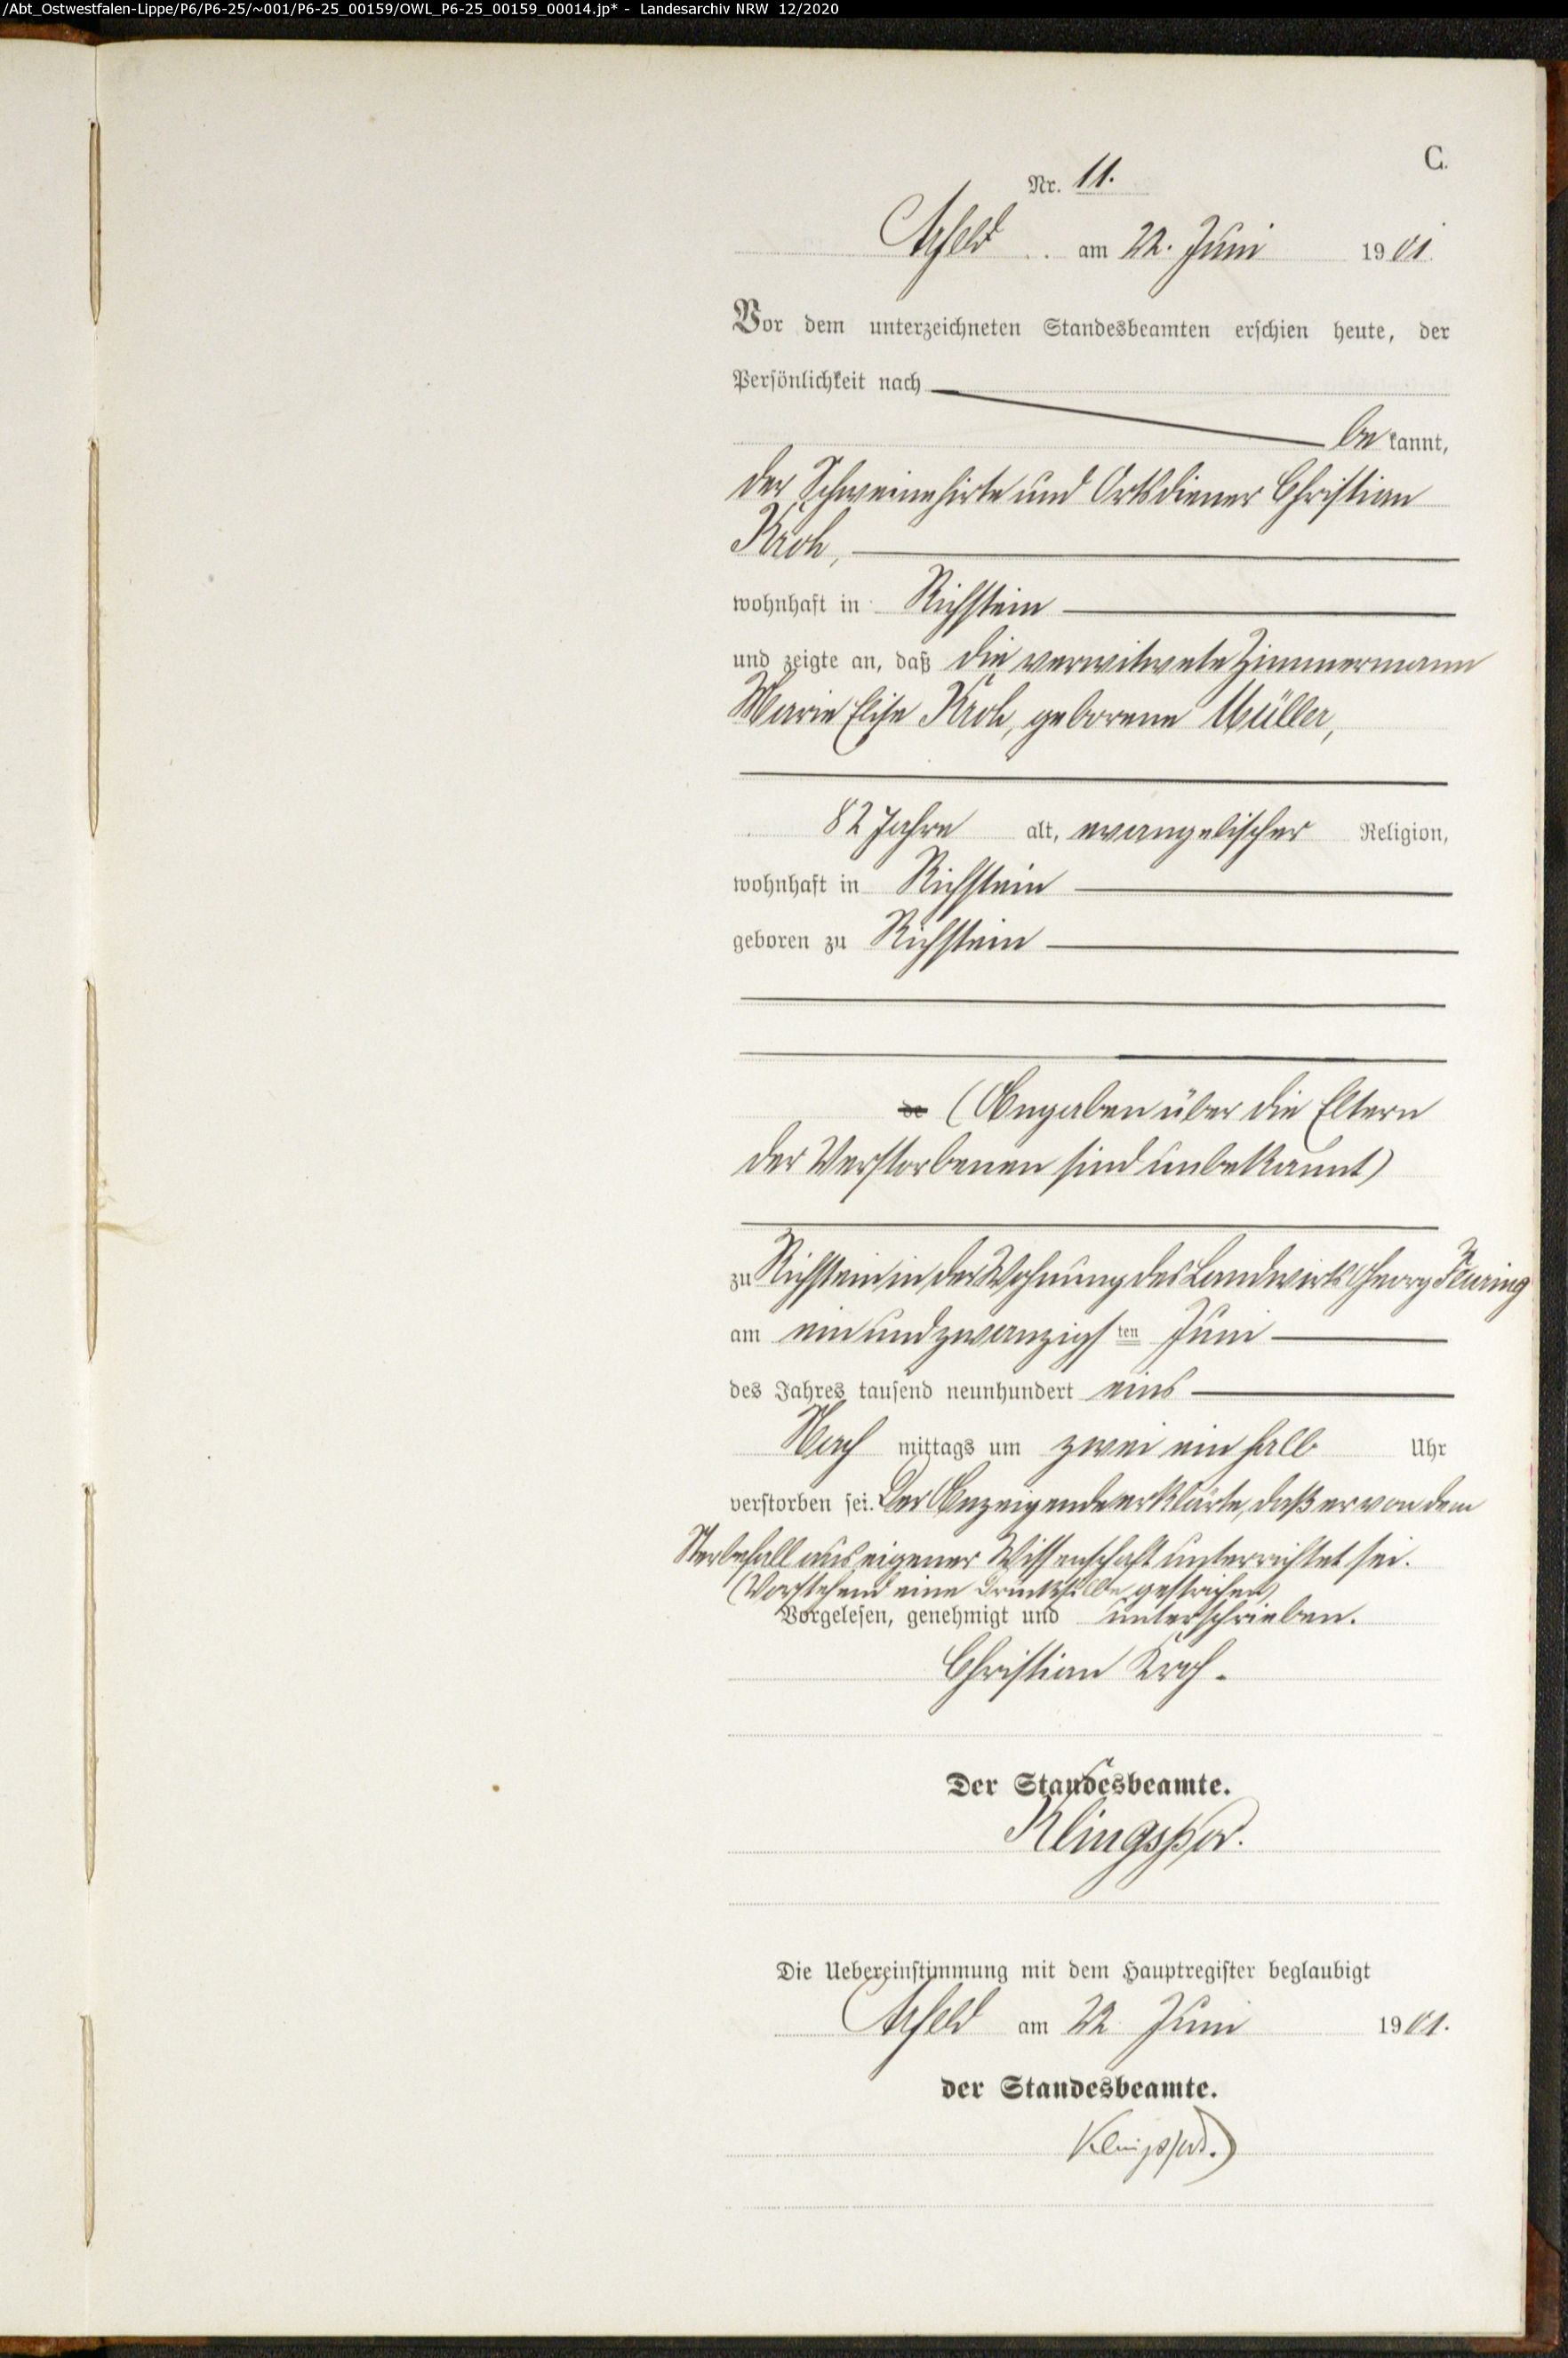 /Abt_Ostwestfalen-Lippe/P6/P6-25/~001/P6-25_00159/OWL_P6-25_00159_00014.jp* - Landesarchiv NRW 12/2020
C.
Nr. 11.
Arfeld am 22. Juni 1901.
Vor dem unterzeichneten Standesbeamten erschien heute, der
Persönlichkeit nach
bekannt,
der Schweinehirte und Ortsdiener Christian
Kroh,
wohnhaft in Richstein
und zeigte an, daß die verwitwete Zimmermann
Marie Elise Kroh, geborene Müller,
82 Jahre alt, evangelischer Religion,
wohnhaft in Richstein
geboren zu Richstein
de (Angaben über die Eltern
der Verstorbenen sind unbekannt)
zu Richstein in der Wohnung des Landwirts Georg
am einundzwanzigsten Juni
des Jahres tausend neunhundert eins
Nachmittags um zwei ein halb Uhr
verstorben sei. Der Anzeigende erklärte, daß er von dem
Sterbefall aus eigener Wissenschaft unterrichtet sei.
(Vorstehend eine Drucksilbe gestrichen)
Vorgelesen, genehmigt und unterschrieben.
Christian Kroh.
Der Standesbeamte.
Klingspor.
Die Uebereinstimmung mit dem Hauptregister beglaubigt
Arfeld am 22 Juni 1901.
der Standesbeamte.
Klingspor.